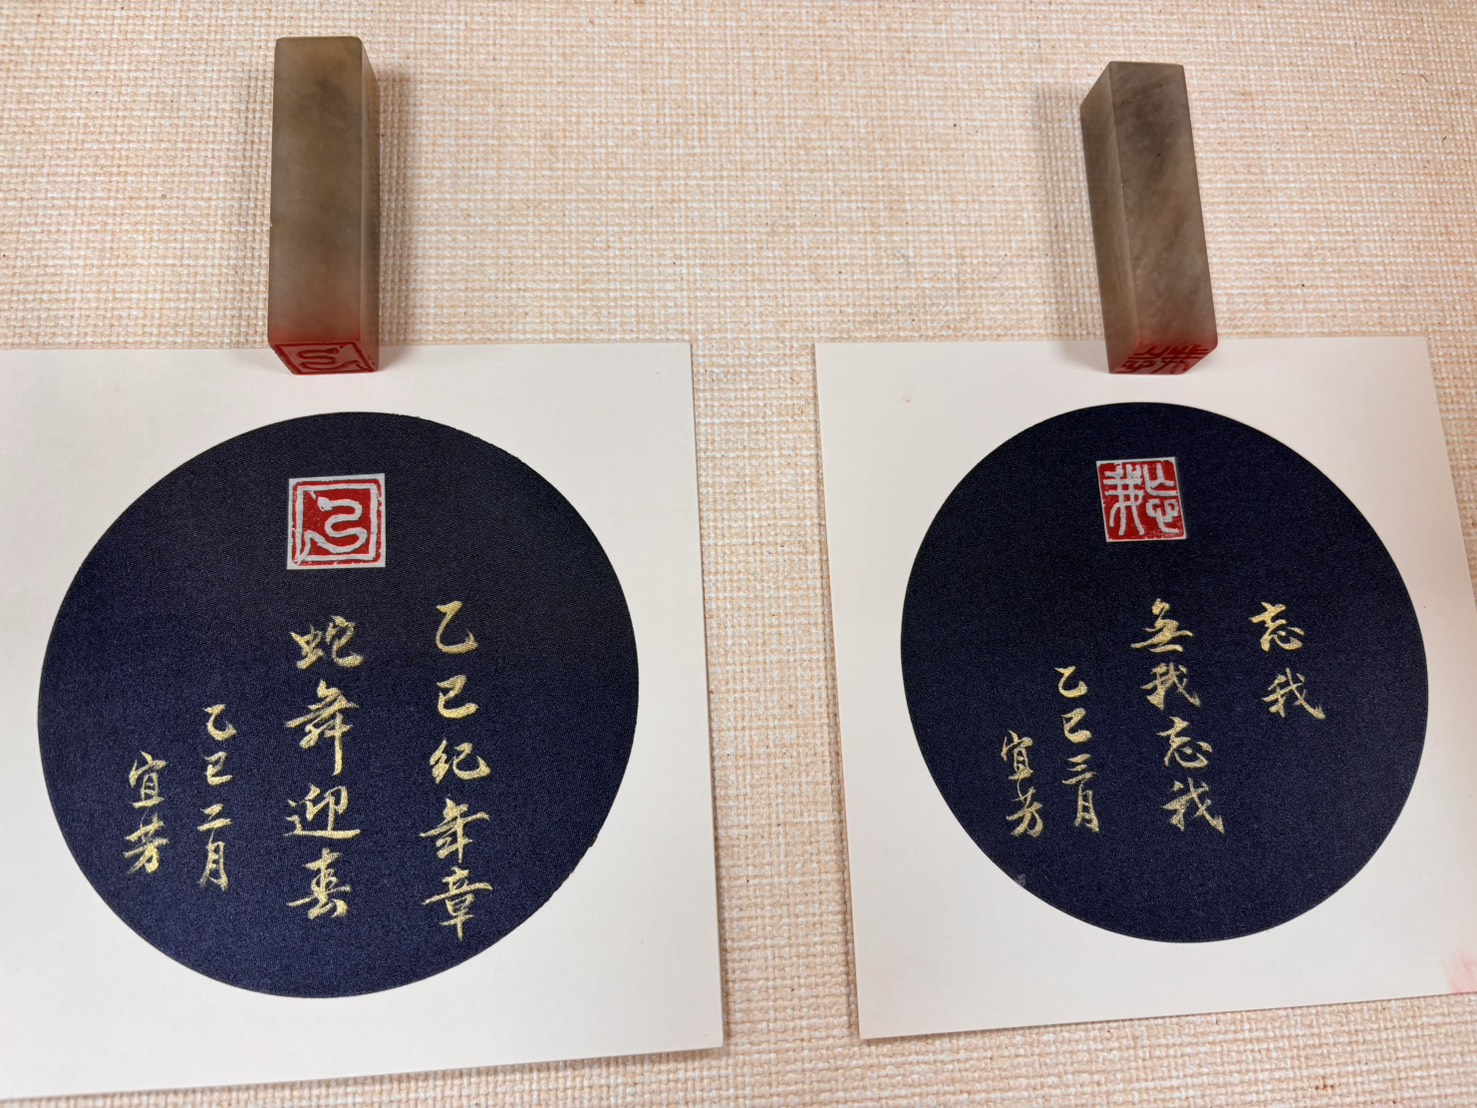 乙巳紀年章
蛇舞迎春
乙巳二月
宜芳
忘我
忘我
無我忘我
乙巳三月
宜芳